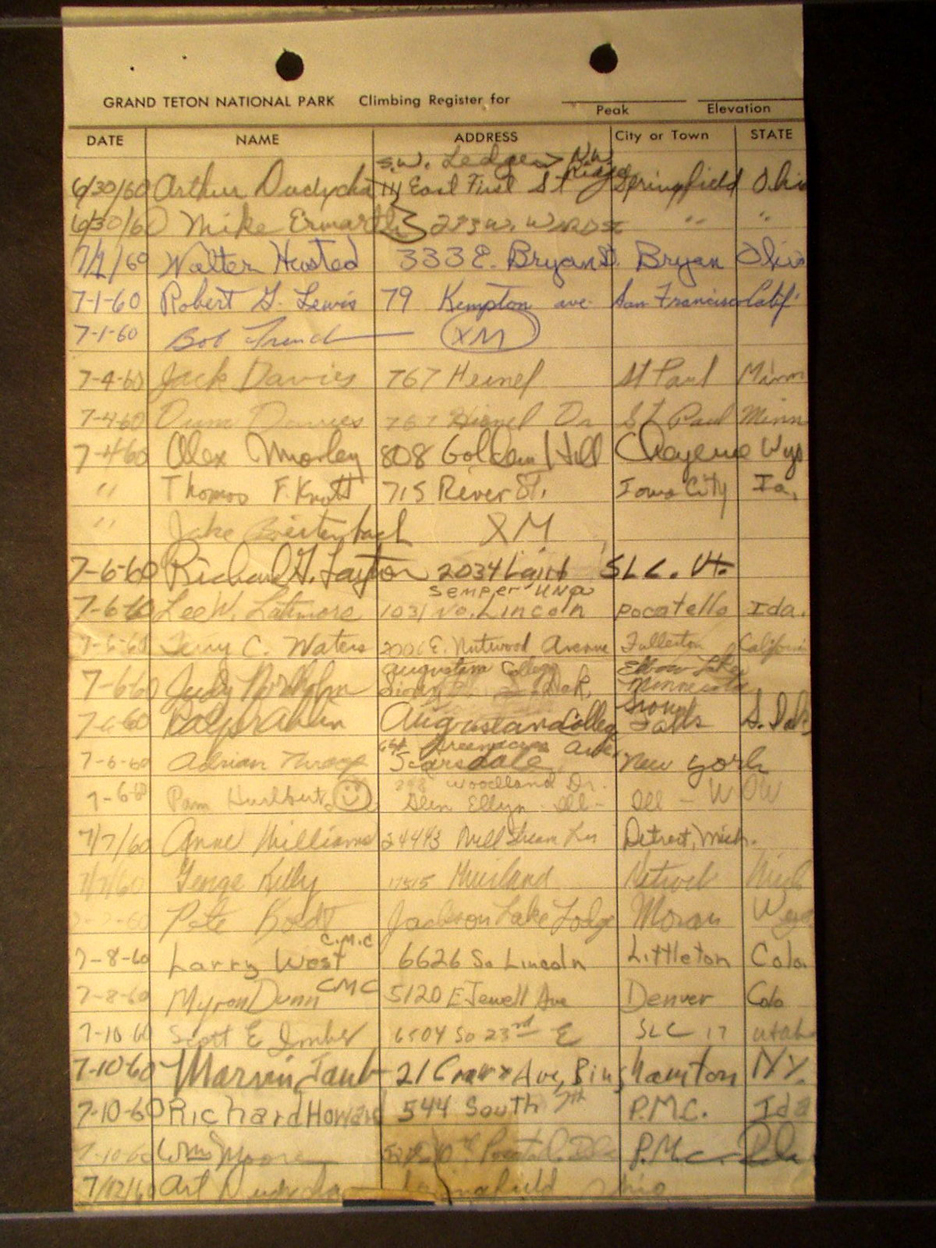 GRAND TETON NATIONAL PARK Climbing Register for
Peak Elevation
DATE NAME ADDRESS City or Town STATE
S.W. Ledges N.W. Ridge
6/30/60 Arthur Dudycha 111 East First St Springfield Ohio
6/30/60 Mike Ermarth W. " "
7/1/60 Walter Husted 333 E. Bryan St. Bryan Ohio
7-1-60 Robert G. Lewis 79 Kempton ave. San Francisco Calif.
7-1-60 Bob French XM
7-4-60 Jack Davies 767 St Paul Minn
7-4-60 Davies 767 Dr St Paul Minn
7-4-60 Alex Morley 808 Golden Hill Cheyenne Wyo
" Thomas F. Knott 715 River St. Iowa City Ia.
" Jake XM
7-6-60 Richard G. Layton 2034 Laird SLC. Ut.
Semper Una
7-6-60 Lee W. Latimore 1031 No. Lincoln Pocatello Ida.
7-6-60 Terry C. Waters E. Nutwood Avenue Fullerton Californi
Augustana College Elbow Lake
7-6-60 Judy Minnesota
7-6-60 Augustana College Sioux Falls S. Dak
Greenacres Ave.
7-6-60 Adrian Scarsdale New York
Woodland Dr.
7-6-60 Pam Hurlbert Glen Ellyn Ill- Ill - WOW
7/7/60 Anne Williams Detroit, Mich.
7/7/60 George Kelly Muirland Detroit Mich
7-7-60 Pete Jackson Lake Lodge Moran Wyo
7-8-60 Larry West C.M.C 6626 So Lincoln Littleton Colo
7-8-60 Myron Dunn CMC 5120 E Jewell Ave Denver Colo
7-10 60 Scott E 6504 So 23rd E SLC 17 utah
7-10 60 Marvin Taub 21 Ave, Binghamton N.Y.
7-10-60 Richard Howard 544 South 7th P.M.C. Ida
7-10-60 Wm Moore P.M.C.
7/12/60 Art Dudycha Springfield Ohio